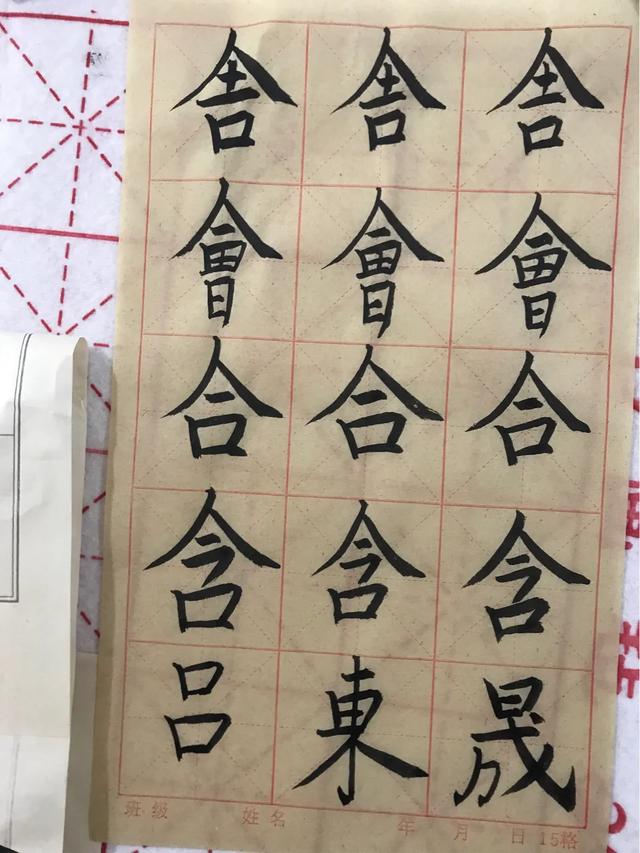 舎 舎 舎
會 會 會
合 合 合
含 含 含
吕 東 晟
班级 姓名 年 月 日 15格